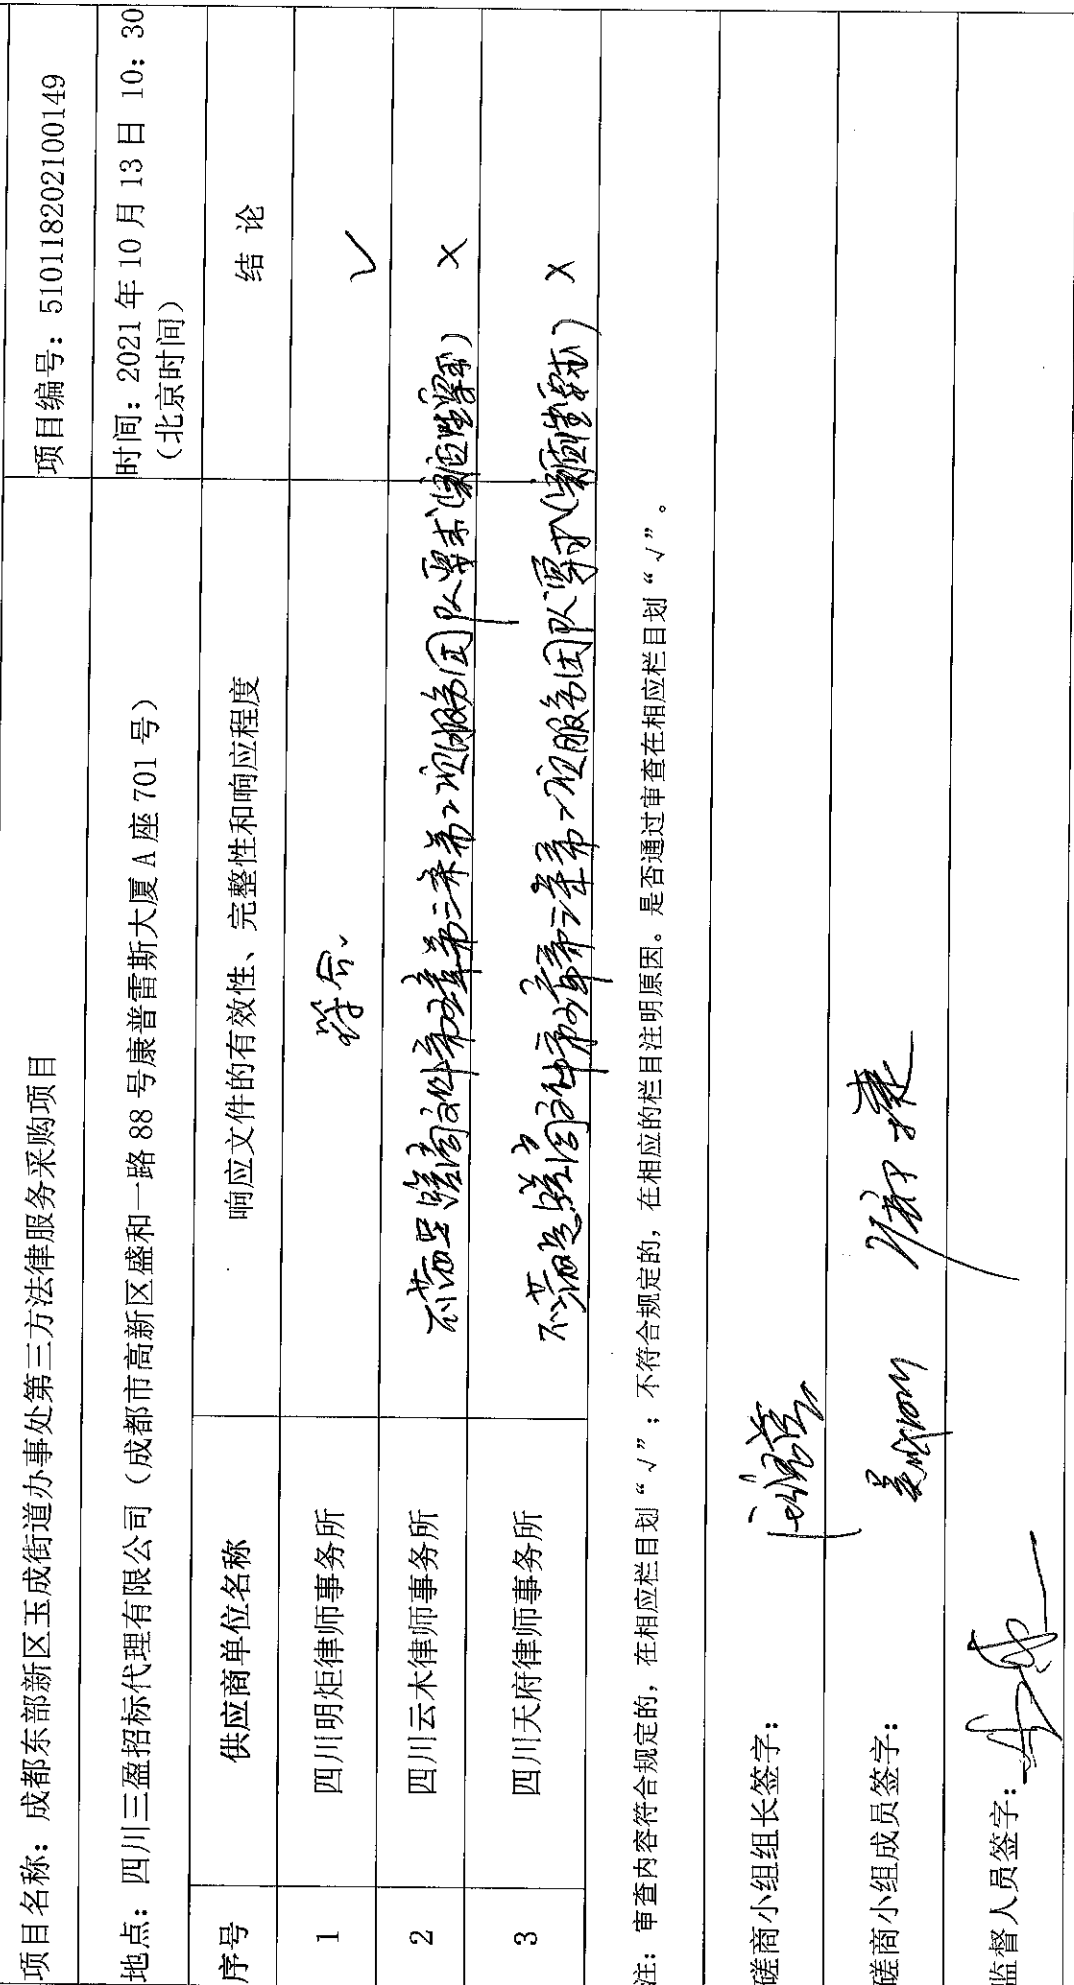 项目名称：成都东部新区玉成街道办事处第三方法律服务采购项目
项目编号：510118202100149
地点：四川三盈招标代理有限公司（成都市高新区盛和一路 88 号康普雷斯大厦 A 座 701 号）
时间：2021 年 10 月 13 日 10：30
（北京时间）
序号 供应商单位名称 响应文件的有效性、完整性和响应程度 结 论
1 四川明炬律师事务所 符合、 √
2 四川云木律师事务所 不满足磋商文件第五章第二条第2项服务团队要求(实质性要求) ×
3 四川天府律师事务所 不满足磋商文件第五章第二条第2项服务团队要求(实质性要求) ×
注：审查内容符合规定的，在相应栏目划“√”；不符合规定的，在相应的栏目注明原因。是否通过审查在相应栏目划“√”。
磋商小组组长签字：
磋商小组成员签字：
监督人员签字：